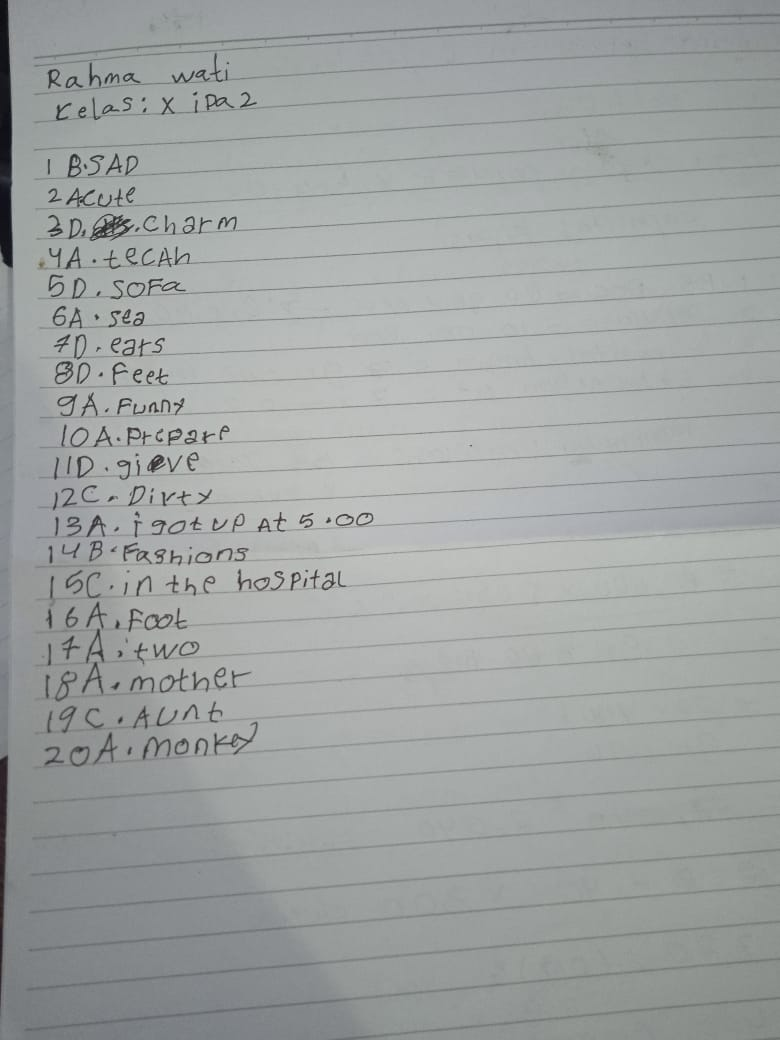 Rahma wati
Kelas: X ipa 2
1 B.SAD
2 A.cute
3 D. .charm
4A.tecAh
5D.SOFa
6A.sea
7D.ears
8D.Feet
9A.Funny
10A.Prepare
11D.gieve
12C.Dirty
13A.i got up At 5.00
14B.Fashions
15C.in the hospital
16A.Foot
17A.two
18A.mother
19C.AUnt
20A.monkey